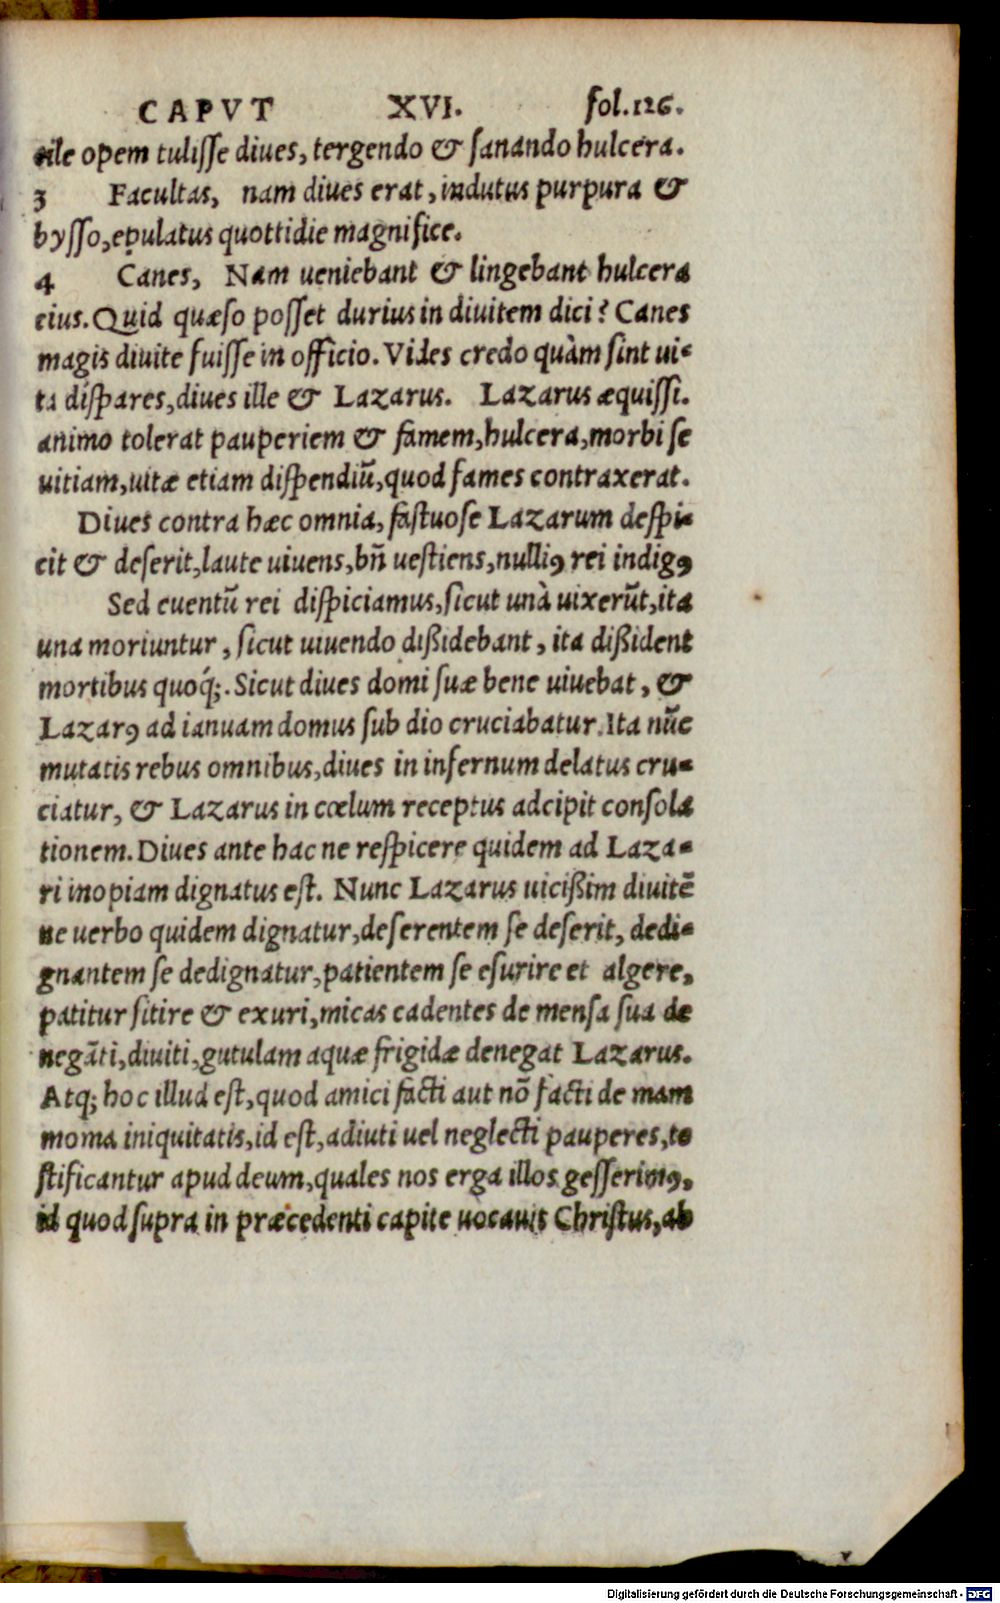 CAPVT XVI. fol.126.
uile opem tulisse diues, tergendo & sanando hulcera.
3 Facultas, nam diues erat, indutus purpura &
bysso, epulatus quottidie magnifice.
4 Canes, Nam ueniebant & lingebant hulcera
eius. Quid quæso posset durius in diuitem dici? Canes
magis diuite fuisse in officio. Vides credo quàm sint ui-
ta dispares, diues ille & Lazarus. Lazarus æquissi.
animo tolerat pauperiem & famem, hulcera, morbi se
uitiam, uitæ etiam dispendiũ, quod fames contraxerat.
Diues contra hæc omnia, fastuose Lazarum despi-
cit & deserit, laute uiuens, bñ uestiens, nulliꝰ rei indigꝰ
Sed euentũ rei dispiciamus, sicut unà uixerũt, ita
una moriuntur, sicut uiuendo dißidebant, ita dißident
mortibus quoq́;. Sicut diues domi suæ bene uiuebat, &
Lazarꝰ ad ianuam domus sub dio cruciabatur. Ita nũc
mutatis rebus omnibus, diues in infernum delatus cru-
ciatur, & Lazarus in cœlum receptus adcipit consola
tionem. Diues ante hac ne respicere quidem ad Laza-
ri inopiam dignatus est. Nunc Lazarus uicißim diuitẽ
ne uerbo quidem dignatur, deserentem se deserit, dedi-
gnantem se dedignatur, patientem se esurire et algere,
patitur sitire & exuri, micas cadentes de mensa sua de
negãti, diuiti, gutulam aquæ frigidæ denegat Lazarus.
Atq; hoc illud est, quod amici facti aut nõ facti de mam
moma iniquitatis, id est, adiuti uel neglecti pauperes, te
stificantur apud deum, quales nos erga illos gesserimꝰ,
id quod supra in præcedenti capite uocauit Christus, ab
Digitalisierung gefördert durch die Deutsche Forschungsgemeinschaft - DFG